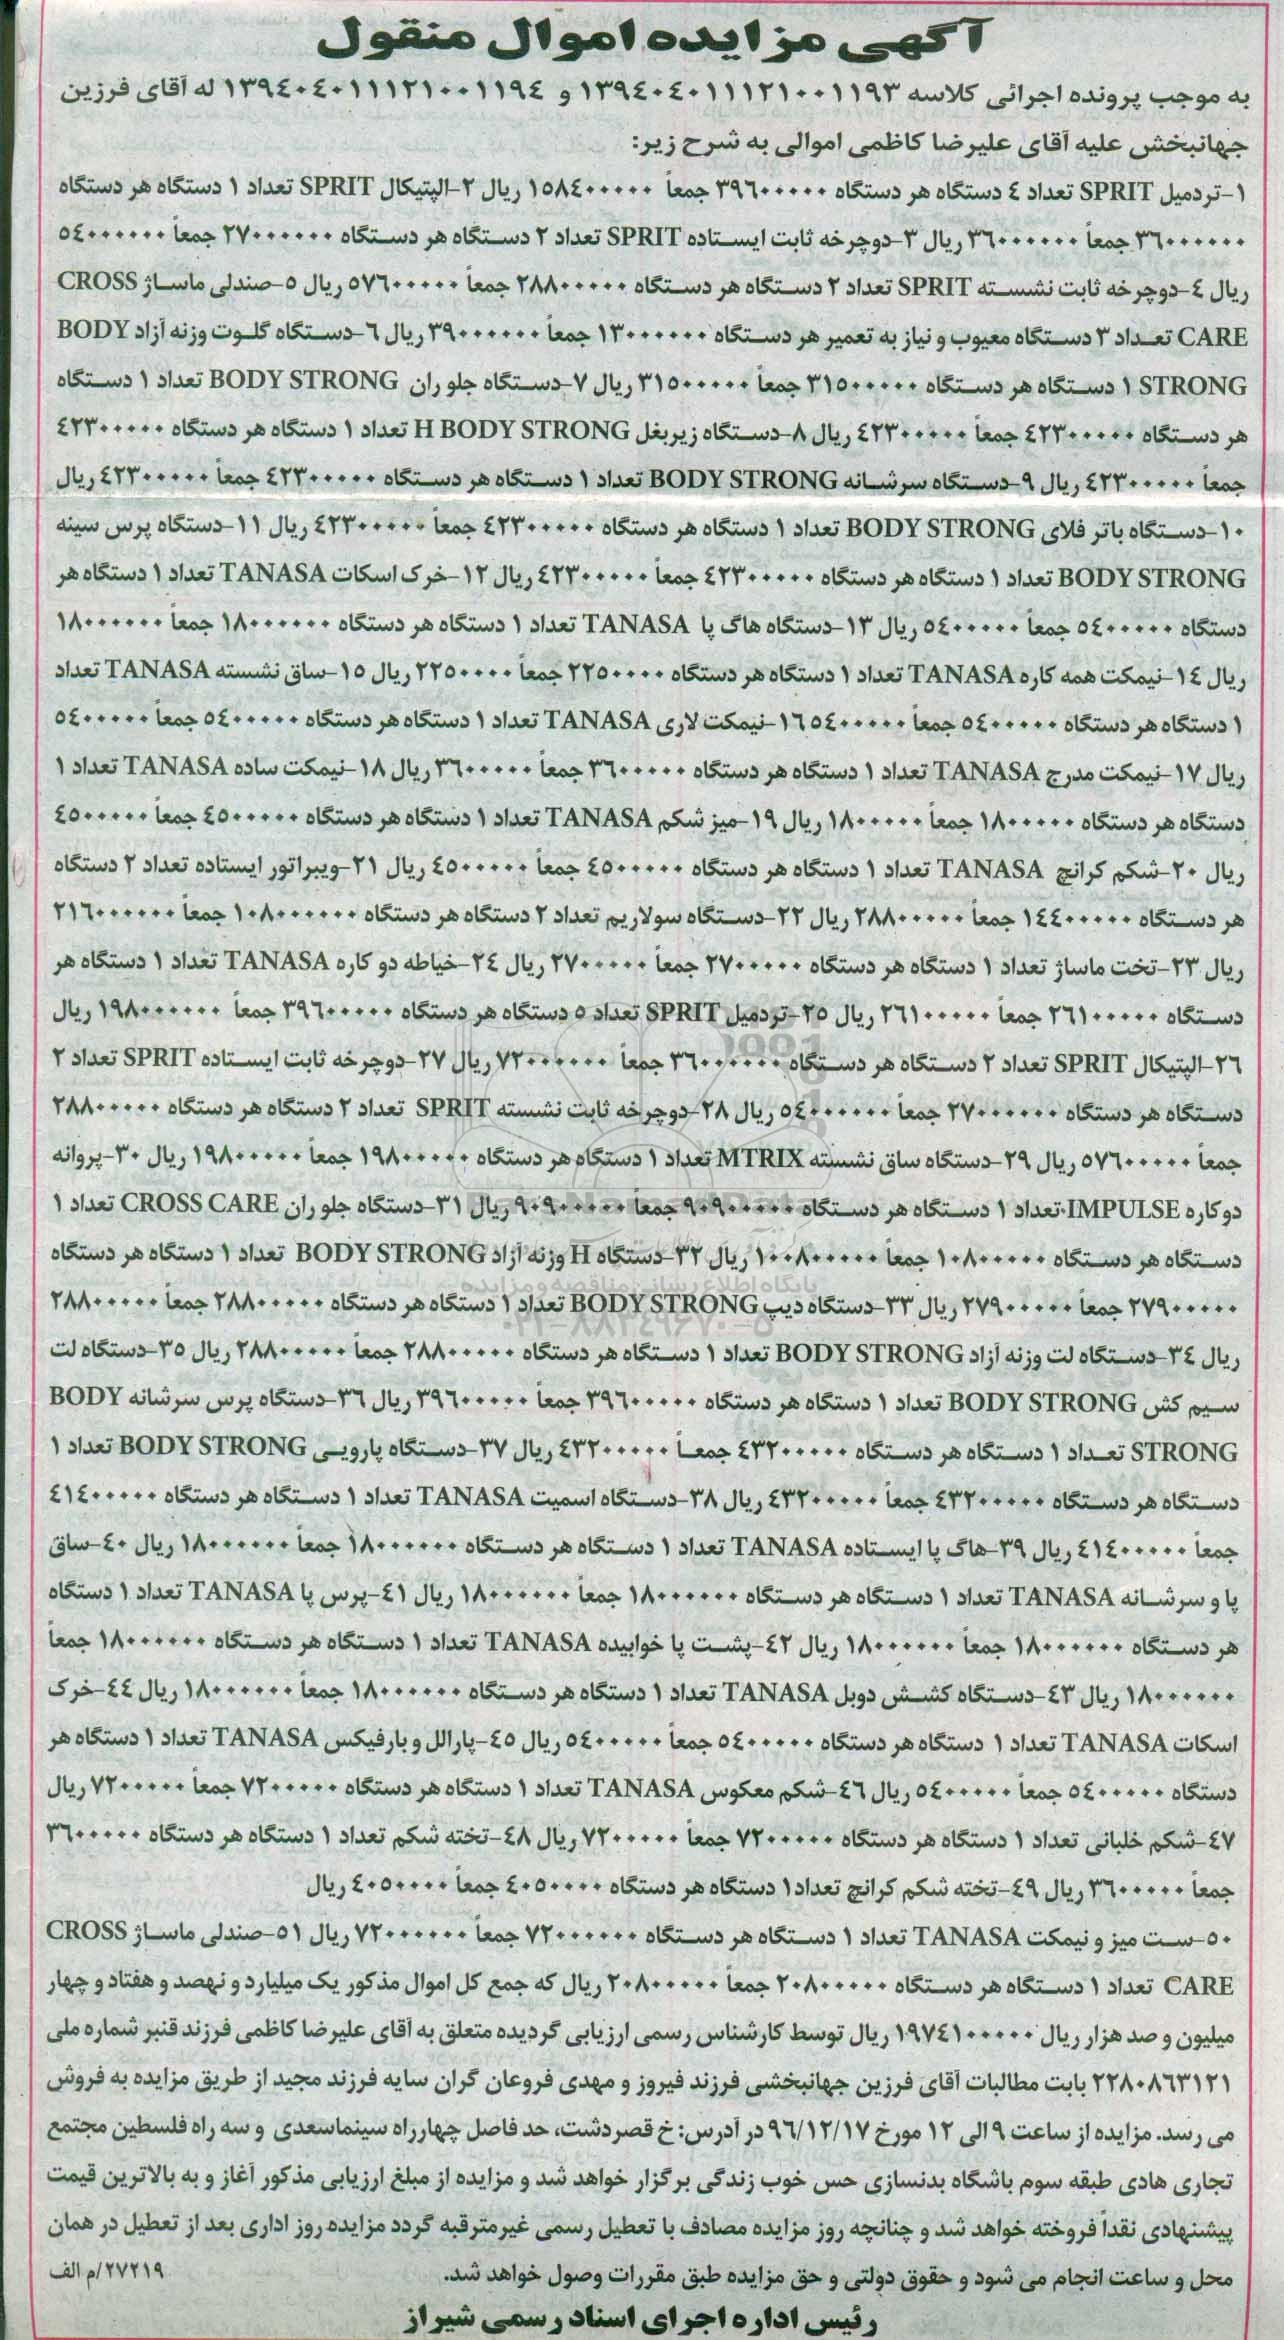 آگهی مزایده اموال منقول
به موجب پرونده اجرائی کلاسه ۱۳۹٤۰٤۰۱۱۱۲۱۰۰۱۱۹۳ و ۱۳۹٤۰٤۰۱۱۱۲۱۰۰۱۱۹٤ له آقای فرزین
جهانبخش علیه آقای علیرضا کاظمی اموالی به شرح زیر:
۱-تردمیل SPRIT تعداد ٤ دستگاه هر دستگاه ۳۹٦۰۰۰۰۰ جمعاً ۱٥۸٤۰۰۰۰۰ ریال ۲-الپتیکال SPRIT تعداد ۱ دستگاه هر دستگاه
۳٦۰۰۰۰۰۰ جمعاً ۳٦۰۰۰۰۰۰ ریال ۳-دوچرخه ثابت ایستاده SPRIT تعداد ۲ دستگاه هر دستگاه ۲۷۰۰۰۰۰۰ جمعاً ٥٤۰۰۰۰۰۰
ریال ٤-دوچرخه ثابت نشسته SPRIT تعداد ۲ دستگاه هر دستگاه ۲۸۸۰۰۰۰۰ جمعاً ٥۷٦۰۰۰۰۰ ریال ٥-صندلی ماساژ CROSS
CARE تعداد ۳ دستگاه معیوب و نیاز به تعمیر هر دستگاه ۱۳۰۰۰۰۰۰ جمعاً ۳۹۰۰۰۰۰۰ ریال ٦-دستگاه گلوت وزنه آزاد BODY
STRONG ۱ دستگاه هر دستگاه ۳۱٥۰۰۰۰۰ جمعاً ۳۱٥۰۰۰۰۰ ریال ۷-دستگاه جلو ران BODY STRONG تعداد ۱ دستگاه
هر دستگاه ٤۲۳۰۰۰۰۰ جمعاً ٤۲۳۰۰۰۰۰ ریال ۸-دستگاه زیربغل H BODY STRONG تعداد ۱ دستگاه هر دستگاه ٤۲۳۰۰۰۰۰
جمعاً ٤۲۳۰۰۰۰۰ ریال ۹-دستگاه سرشانه BODY STRONG تعداد ۱ دستگاه هر دستگاه ٤۲۳۰۰۰۰۰ جمعاً ٤۲۳۰۰۰۰۰ ریال
۱۰-دستگاه باتر فلای BODY STRONG تعداد ۱ دستگاه هر دستگاه ٤۲۳۰۰۰۰۰ جمعاً ٤۲۳۰۰۰۰۰ ریال ۱۱-دستگاه پرس سینه
BODY STRONG تعداد ۱ دستگاه هر دستگاه ٤۲۳۰۰۰۰۰ جمعاً ٤۲۳۰۰۰۰۰ ریال ۱۲-خرک اسکات TANASA تعداد ۱ دستگاه هر
دستگاه ٥٤۰۰۰۰۰ جمعاً ٥٤۰۰۰۰۰ ریال ۱۳-دستگاه هاگ پا TANASA تعداد ۱ دستگاه هر دستگاه ۱۸۰۰۰۰۰۰ جمعاً ۱۸۰۰۰۰۰۰
ریال ۱٤-نیمکت همه کاره TANASA تعداد ۱ دستگاه هر دستگاه ۲۲٥۰۰۰۰ جمعاً ۲۲٥۰۰۰۰ ریال ۱٥-ساق نشسته TANASA تعداد
۱ دستگاه هر دستگاه ٥٤۰۰۰۰۰ جمعاً ٥٤۰۰۰۰۰ ۱٦-نیمکت لاری TANASA تعداد ۱ دستگاه هر دستگاه ٥٤۰۰۰۰۰ جمعاً ٥٤۰۰۰۰۰
ریال ۱۷-نیمکت مدرج TANASA تعداد ۱ دستگاه هر دستگاه ۳٦۰۰۰۰۰ جمعاً ۳٦۰۰۰۰۰ ریال ۱۸-نیمکت ساده TANASA تعداد ۱
دستگاه هر دستگاه ۱۸۰۰۰۰۰ جمعاً ۱۸۰۰۰۰۰ ریال ۱۹-میز شکم TANASA تعداد ۱ دستگاه هر دستگاه ٤٥۰۰۰۰۰ جمعاً ٤٥۰۰۰۰۰
ریال ۲۰-شکم کرانچ TANASA تعداد ۱ دستگاه هر دستگاه ٤٥۰۰۰۰۰ جمعاً ٤٥۰۰۰۰۰ ریال ۲۱-ویبراتور ایستاده تعداد ۲ دستگاه
هر دستگاه ۱٤٤۰۰۰۰۰ جمعاً ۲۸۸۰۰۰۰۰ ریال ۲۲-دستگاه سولاریم تعداد ۲ دستگاه هر دستگاه ۱۰۸۰۰۰۰۰۰ جمعاً ۲۱٦۰۰۰۰۰۰
ریال ۲۳-تخت ماساژ تعداد ۱ دستگاه هر دستگاه ۲۷۰۰۰۰۰ جمعاً ۲۷۰۰۰۰۰ ریال ۲٤-خیاطه دو کاره TANASA تعداد ۱ دستگاه هر
دستگاه ۲٦۱۰۰۰۰۰ جمعاً ۲٦۱۰۰۰۰۰ ریال ۲٥-تردمیل SPRIT تعداد ٥ دستگاه هر دستگاه ۳۹٦۰۰۰۰۰ جمعاً ۱۹۸۰۰۰۰۰۰ ریال
۲٦-الپتیکال SPRIT تعداد ۲ دستگاه هر دستگاه ۳٦۰۰۰۰۰۰ جمعاً ۷۲۰۰۰۰۰۰ ریال ۲۷-دوچرخه ثابت ایستاده SPRIT تعداد ۲
دستگاه هر دستگاه ۲۷۰۰۰۰۰۰ جمعاً ٥٤۰۰۰۰۰۰ ریال ۲۸-دوچرخه ثابت نشسته SPRIT تعداد ۲ دستگاه هر دستگاه ۲۸۸۰۰۰۰۰
جمعاً ٥۷٦۰۰۰۰۰ ریال ۲۹-دستگاه ساق نشسته MTRIX تعداد ۱ دستگاه هر دستگاه ۱۹۸۰۰۰۰۰ جمعاً ۱۹۸۰۰۰۰۰ ریال ۳۰-پروانه
دو کاره IMPULSE تعداد ۱ دستگاه هر دستگاه ۹۰۹۰۰۰۰۰ جمعاً ۹۰۹۰۰۰۰۰ ریال ۳۱-دستگاه جلو ران CROSS CARE تعداد ۱
دستگاه هر دستگاه ۱۰۸۰۰۰۰۰ جمعاً ۱۰۰۸۰۰۰۰۰ ریال ۳۲-دستگاه H وزنه آزاد BODY STRONG تعداد ۱ دستگاه هر دستگاه
۲۷۹۰۰۰۰۰ جمعاً ۲۷۹۰۰۰۰۰ ریال ۳۳-دستگاه دیپ BODY STRONG تعداد ۱ دستگاه هر دستگاه ۲۸۸۰۰۰۰۰ جمعاً ۲۸۸۰۰۰۰۰
ریال ۳٤-دستگاه لت وزنه آزاد BODY STRONG تعداد ۱ دستگاه هر دستگاه ۲۸۸۰۰۰۰۰ جمعاً ۲۸۸۰۰۰۰۰ ریال ۳٥-دستگاه لت
سیم کش BODY STRONG تعداد ۱ دستگاه هر دستگاه ۳۹٦۰۰۰۰۰ جمعاً ۳۹٦۰۰۰۰۰ ریال ۳٦-دستگاه پرس سرشانه BODY
STRONG تعداد ۱ دستگاه هر دستگاه ٤۳۲۰۰۰۰۰ جمعاً ٤۳۲۰۰۰۰۰ ریال ۳۷-دستگاه پارویی BODY STRONG تعداد ۱
دستگاه هر دستگاه ٤۳۲۰۰۰۰۰ جمعاً ٤۳۲۰۰۰۰۰ ریال ۳۸-دستگاه اسمیت TANASA تعداد ۱ دستگاه هر دستگاه ٤۱٤۰۰۰۰۰
جمعاً ٤۱٤۰۰۰۰۰ ریال ۳۹-هاگ پا ایستاده TANASA تعداد ۱ دستگاه هر دستگاه ۱۸۰۰۰۰۰۰ جمعاً ۱۸۰۰۰۰۰۰ ریال ٤۰-ساق
پا و سرشانه TANASA تعداد ۱ دستگاه هر دستگاه ۱۸۰۰۰۰۰۰ جمعاً ۱۸۰۰۰۰۰۰ ریال ٤۱-پرس پا TANASA تعداد ۱ دستگاه
هر دستگاه ۱۸۰۰۰۰۰۰ جمعاً ۱۸۰۰۰۰۰۰ ریال ٤۲-پشت پا خوابیده TANASA تعداد ۱ دستگاه هر دستگاه ۱۸۰۰۰۰۰۰ جمعاً
۱۸۰۰۰۰۰۰ ریال ٤۳-دستگاه کشش دوبل TANASA تعداد ۱ دستگاه هر دستگاه ۱۸۰۰۰۰۰۰ جمعاً ۱۸۰۰۰۰۰۰ ریال ٤٤-خرک
اسکات TANASA تعداد ۱ دستگاه هر دستگاه ٥٤۰۰۰۰۰ جمعاً ٥٤۰۰۰۰۰ ریال ٤٥-پارالل و بارفیکس TANASA تعداد ۱ دستگاه هر
دستگاه ٥٤۰۰۰۰۰ جمعاً ٥٤۰۰۰۰۰ ریال ٤٦-شکم معکوس TANASA تعداد ۱ دستگاه هر دستگاه ۷۲۰۰۰۰۰ جمعاً ۷۲۰۰۰۰۰ ریال
٤۷-شکم خلبانی تعداد ۱ دستگاه هر دستگاه ۷۲۰۰۰۰۰ جمعاً ۷۲۰۰۰۰۰ ریال ٤۸-تخته شکم تعداد ۱ دستگاه هر دستگاه ۳٦۰۰۰۰۰
جمعاً ۳٦۰۰۰۰۰ ریال ٤۹-تخته شکم کرانچ تعداد۱ دستگاه هر دستگاه ٤۰٥۰۰۰۰ جمعاً ٤۰٥۰۰۰۰ ریال
۵۰-ست میز و نیمکت TANASA تعداد ۱ دستگاه هر دستگاه ۷۲۰۰۰۰۰۰ جمعاً ۷۲۰۰۰۰۰۰ ریال ٥۱-صندلی ماساژ CROSS
CARE تعداد ۱ دستگاه هر دستگاه ۲۰۸۰۰۰۰۰ جمعاً ۲۰۸۰۰۰۰۰ ریال که جمع کل اموال مذکور یک میلیارد و نهصد و هفتاد و چهار
میلیون و صد هزار ریال ۱۹۷٤۱۰۰۰۰۰ ریال توسط کارشناس رسمی ارزیابی گردیده متعلق به آقای علیرضا کاظمی فرزند قنبر شماره ملی
۲۲۸۰۸٦۳۱۲۱ بابت مطالبات آقای فرزین جهانبخشی فرزند فیروز و مهدی فروعان گران سایه فرزند مجید از طریق مزایده به فروش
می رسد. مزایده از ساعت ۹ الی ۱۲ مورخ ۹٦/۱۲/۱۷ در آدرس: خ قصردشت، حد فاصل چهارراه سینماسعدی و سه راه فلسطین مجتمع
تجاری هادی طبقه سوم باشگاه بدنسازی حس خوب زندگی برگزار خواهد شد و مزایده از مبلغ ارزیابی مذکور آغاز و به بالاترین قیمت
پیشنهادی نقداً فروخته خواهد شد و چنانچه روز مزایده مصادف با تعطیل رسمی غیرمترقبه گردد مزایده روز اداری بعد از تعطیل در همان
محل و ساعت انجام می شود و حقوق دولتی و حق مزایده طبق مقررات وصول خواهد شد. ۲۷۲۱۹/م الف
رئیس اداره اجرای اسناد رسمی شیراز
پایگاه اطلاع رسانی مناقصه و مزایده
۰۲۱-۸۸۳٤۹٦۷۰-٥